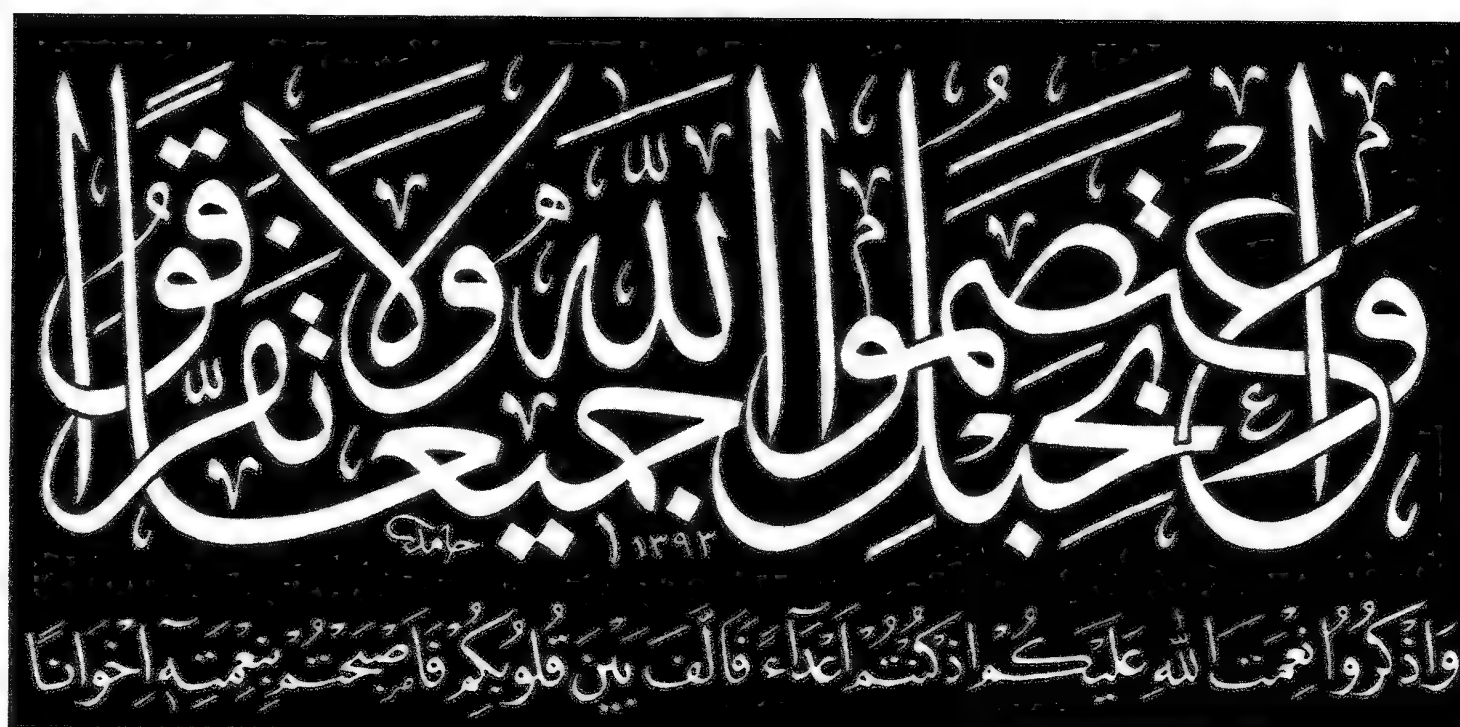 وَاعْتَصِمُوا بِحَبْلِ اللّٰهِ جَمِيعًا وَلَا تَفَرَّقُوا
حامد ١٣٩٣
وَاذْكُرُوا نِعْمَتَ اللّٰهِ عَلَيْكُمْ اِذْ كُنْتُمْ اَعْدَآءً فَاَلَّفَ بَيْنَ قُلُوبِكُمْ فَاَصْبَحْتُمْ بِنِعْمَتِهٖٓ اِخْوَانًا